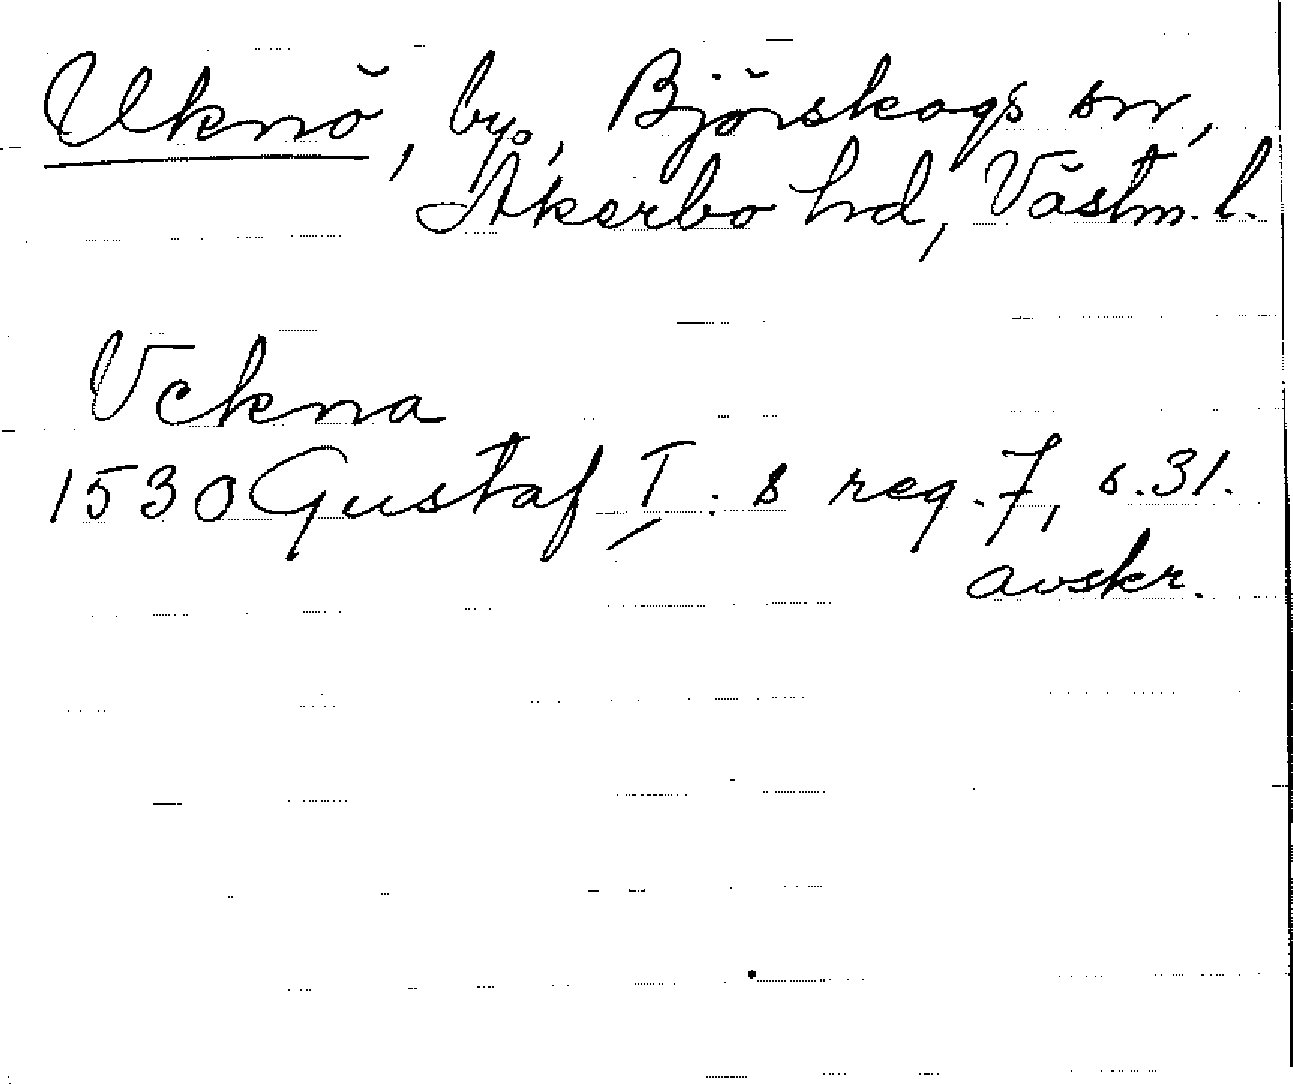 Uknö, by, Björskogs sn,
Åkerbo hd, Västm. l.
Vckna
1530 Gustaf I: s reg. 7, s. 31.
avskr.